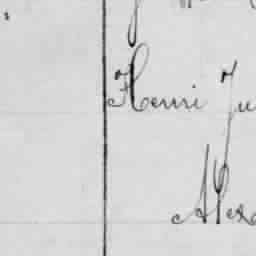 Henri Ju
Alex